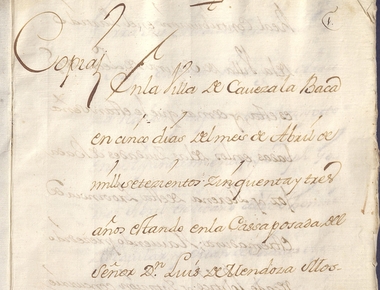 1.
Copia
En la Villa de Caveza la Baca
en cinco dias del mes de Abril de
mill setezientos zinquenta y tres
años estando en la Cassa posada del
Señor Dn. Luis de Mendoza